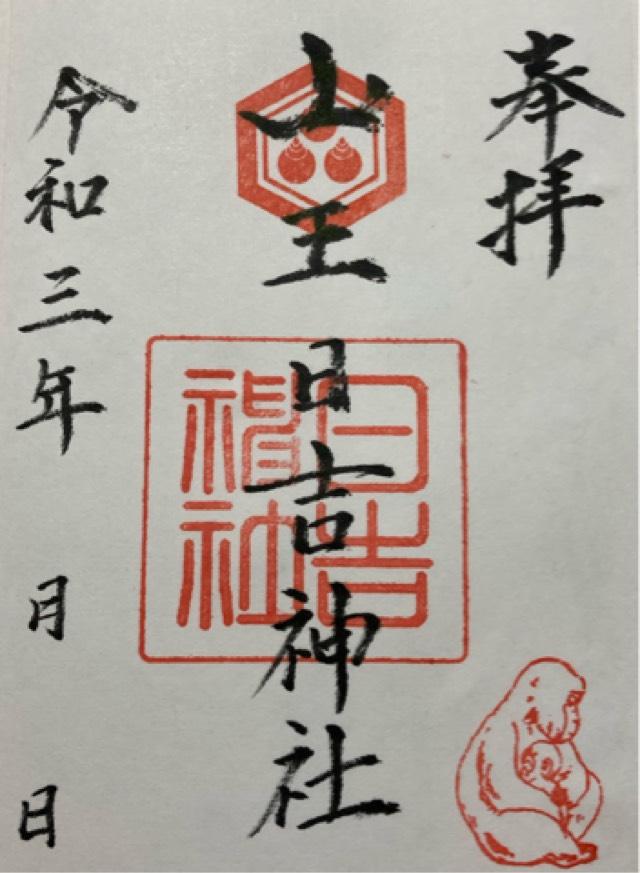 奉拝
山王
日吉神社
日吉神社
令和三年 月 日